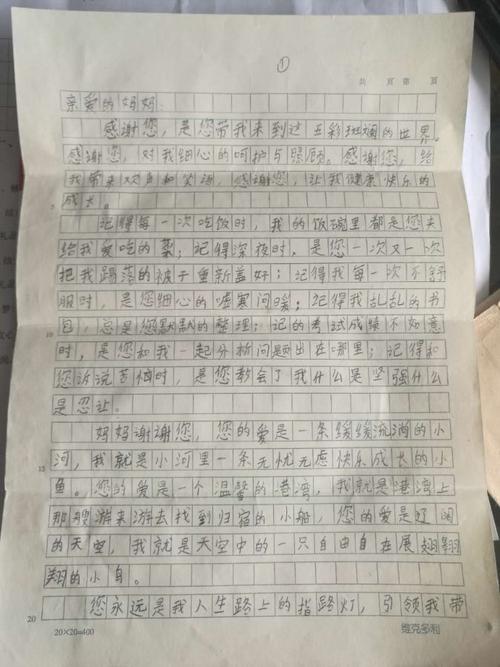 ①
共 页 第 页
亲爱的妈妈:
感谢您,是您带我来到这五彩斑斓的世界。
感谢您,对我细心的呵护与照顾。感谢您,给
我带来欢声和笑语,感谢您,让我健康快乐的
5 成长。
记得每一次吃饭时,我的饭碗里都是您夹
给我爱吃的菜;记得深夜时,是您一次又一次
把我踢落的被子重新盖好;记得我每一次不舒
服时,是您细心的嘘寒问暖;记得我乱乱的书
10 包,总是您默默的整理;记的考试成绩不如意
时,是您和我一起分析问题出在哪里;记得和
您诉说苦恼时,是您教会了我什么是坚强什么
是忍让。
妈妈谢谢您,您的爱是一条缓缓流淌的小
15 河,我就是小河里一条无忧无虑快乐成长的小
鱼。您的爱是一个温馨的港湾,我就是港湾上
那艘游来游去找到归宿的小船,您的爱是辽阔
的天空,我就是天空中的一只自由自在展翅翱
翔的小鸟。
20 您永远是我人生路上的指路灯,引领我带
20×20=400 维克多利